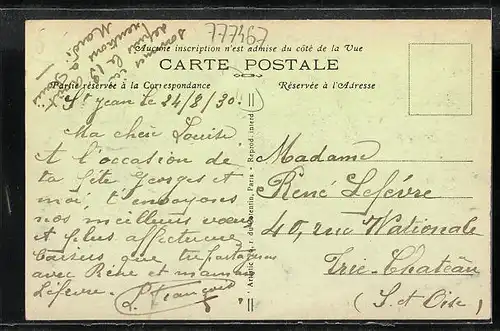 777467
Aucune inscription n'est admise du côté de la Vue
CARTE POSTALE
Partie réservée à la Correspondance
Réservée à l'Adresse
St Jean le 24/8/30.
Ma chère Louise
A l'occasion de
ta fête Georges et
moi, t'envoyons
nos meilleurs vœux
et plus affectueux
baisers que tu partageras
avec René et maman
Lefèvre.
L. François
Paris - Reprod. interd.
Madame
René Lefèvre
40, rue Nationale
Trie-Château
(S. et Oise)